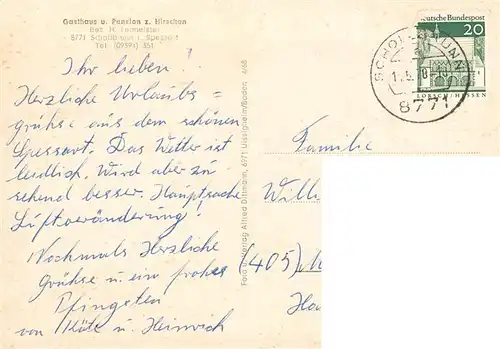 Gasthaus u. Pension z. Hirschen
Bes. H.
8771 Schollbrunn i. Spessart
Tel. (09394) 351
Ihr lieben!
Herzliche Urlaubs=
grühse aus dem schönen
Spessart. Das Wetter ist
leidlich. Wird aber zu
sehend besser. Hauptsache
Luftveränderung!
Nochmals Herzliche
Grühse u. ein frohes
Pfingsten
von Käte u. Heinrich
Foto u. Verlag Alfred Dittmann, 6971 Uissigheim/Baden
Deutsche Bundespost
20
LORSCH/HESSEN
SCHOLLBRUNN
8771
Familie
Will
(405)